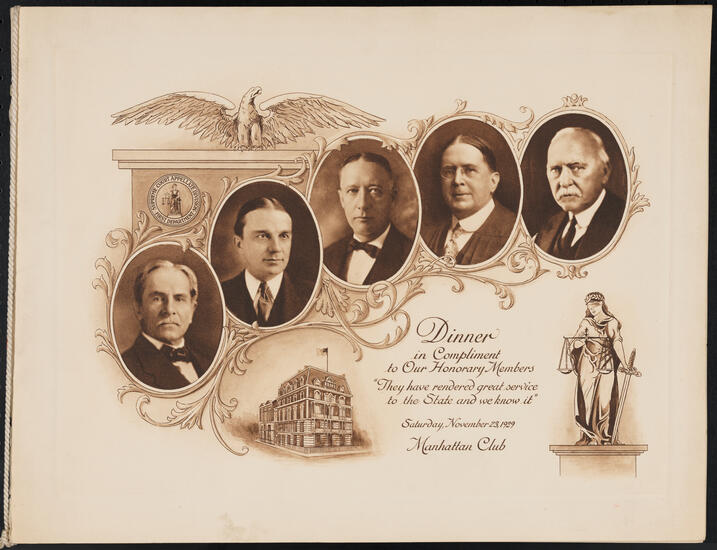 SUPREME COURT APPELLATE DIVISION
FIRST DEPARTMENT
Dinner
in Compliment
to Our Honorary Members
"They have rendered great service
to the State and we know it"
Saturday, November 23, 1929
Manhattan Club